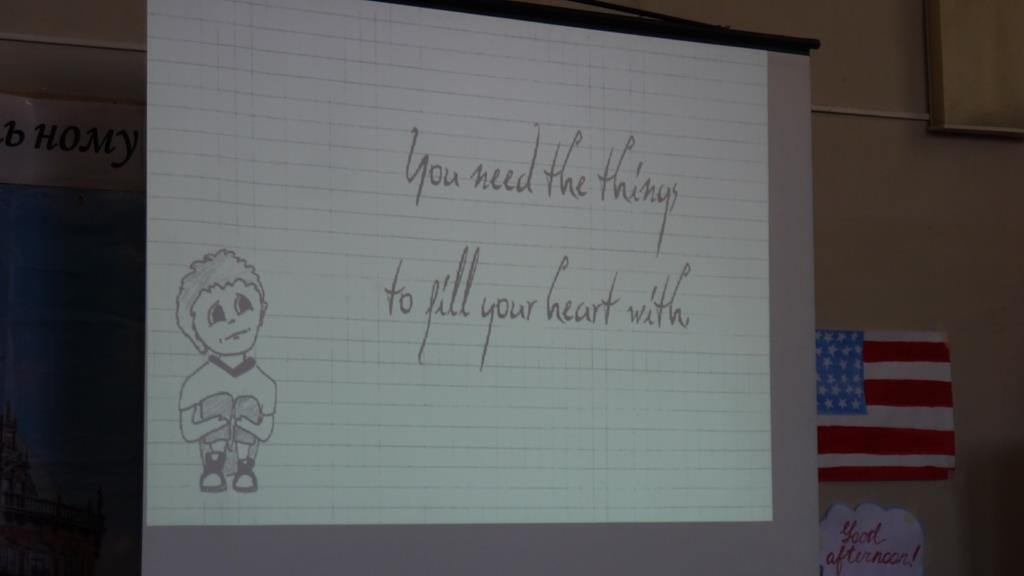 ь ному
You need the things
to fill your heart with.
Good
afternoon!